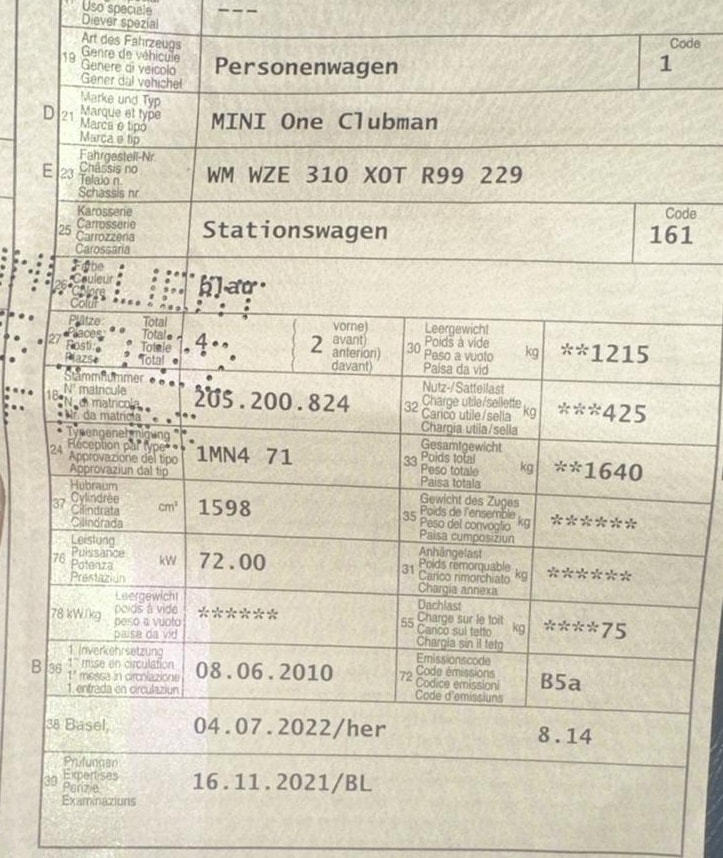 Uso speciale
Diever spezial
---
Art des Fahrzeugs
19 Genre de véhicule
Genere di veicolo
Gener dal vehichel
Personenwagen
Code
1
D 21 Marke und Typ
Marque et type
Marca e tipo
Marca e tip
MINI One Clubman
E 23 Fahrgestell-Nr.
Châssis no
Telaio n.
Schassis nr.
WM WZE 310 X0T R99 229
25 Karosserie
Carrosserie
Carrozzeria
Carossaria
Stationswagen
Code
161
26 Farbe
Couleur
Colore
Colur
blau
27 Plätze: Total
Places: Total
Posti: Totale
Plazs: Total
4
2
vorne)
avant)
anteriori)
davant)
30 Leergewicht
Poids à vide
Peso a vuoto
Paisa da vid
kg
**1215
18 Stammnummer
N° matricule
N. di matricola
Nr. da matricla
205.200.824
32 Nutz-/Sattellast
Charge utile/sellette
Carico utile/sella
Chargia utila/sella
kg
***425
24 Typengenehmigung
Réception par type
Approvazione del tipo
Approvaziun dal tip
1MN4 71
33 Gesamtgewicht
Poids total
Peso totale
Paisa totala
kg
**1640
37 Hubraum
Cylindrée
Cilindrata
Cilindrada
cm³
1598
35 Gewicht des Zuges
Poids de l'ensemble
Peso del convoglio
Paisa cumposiziun
kg
******
76 Leistung
Puissance
Potenza
Prestaziun
kW
72.00
31 Anhängelast
Poids remorquable
Carico rimorchiato
Chargia annexa
kg
******
78 kW/kg
Leergewicht
poids à vide
peso a vuoto
paisa da vid
******
55 Dachlast
Charge sur le toit
Carico sul tetto
Chargia sin il tetg
kg
****75
B 36 1. Inverkehrsetzung
1re mise en circulation
1a messa in circolazione
1. entrada en circulaziun
08.06.2010
72 Emissionscode
Code émissions
Codice emissioni
Code d'emissiuns
B5a
38 Basel,
04.07.2022/her
8.14
39 Prüfungen
Expertises
Perizie
Examinaziuns
16.11.2021/BL